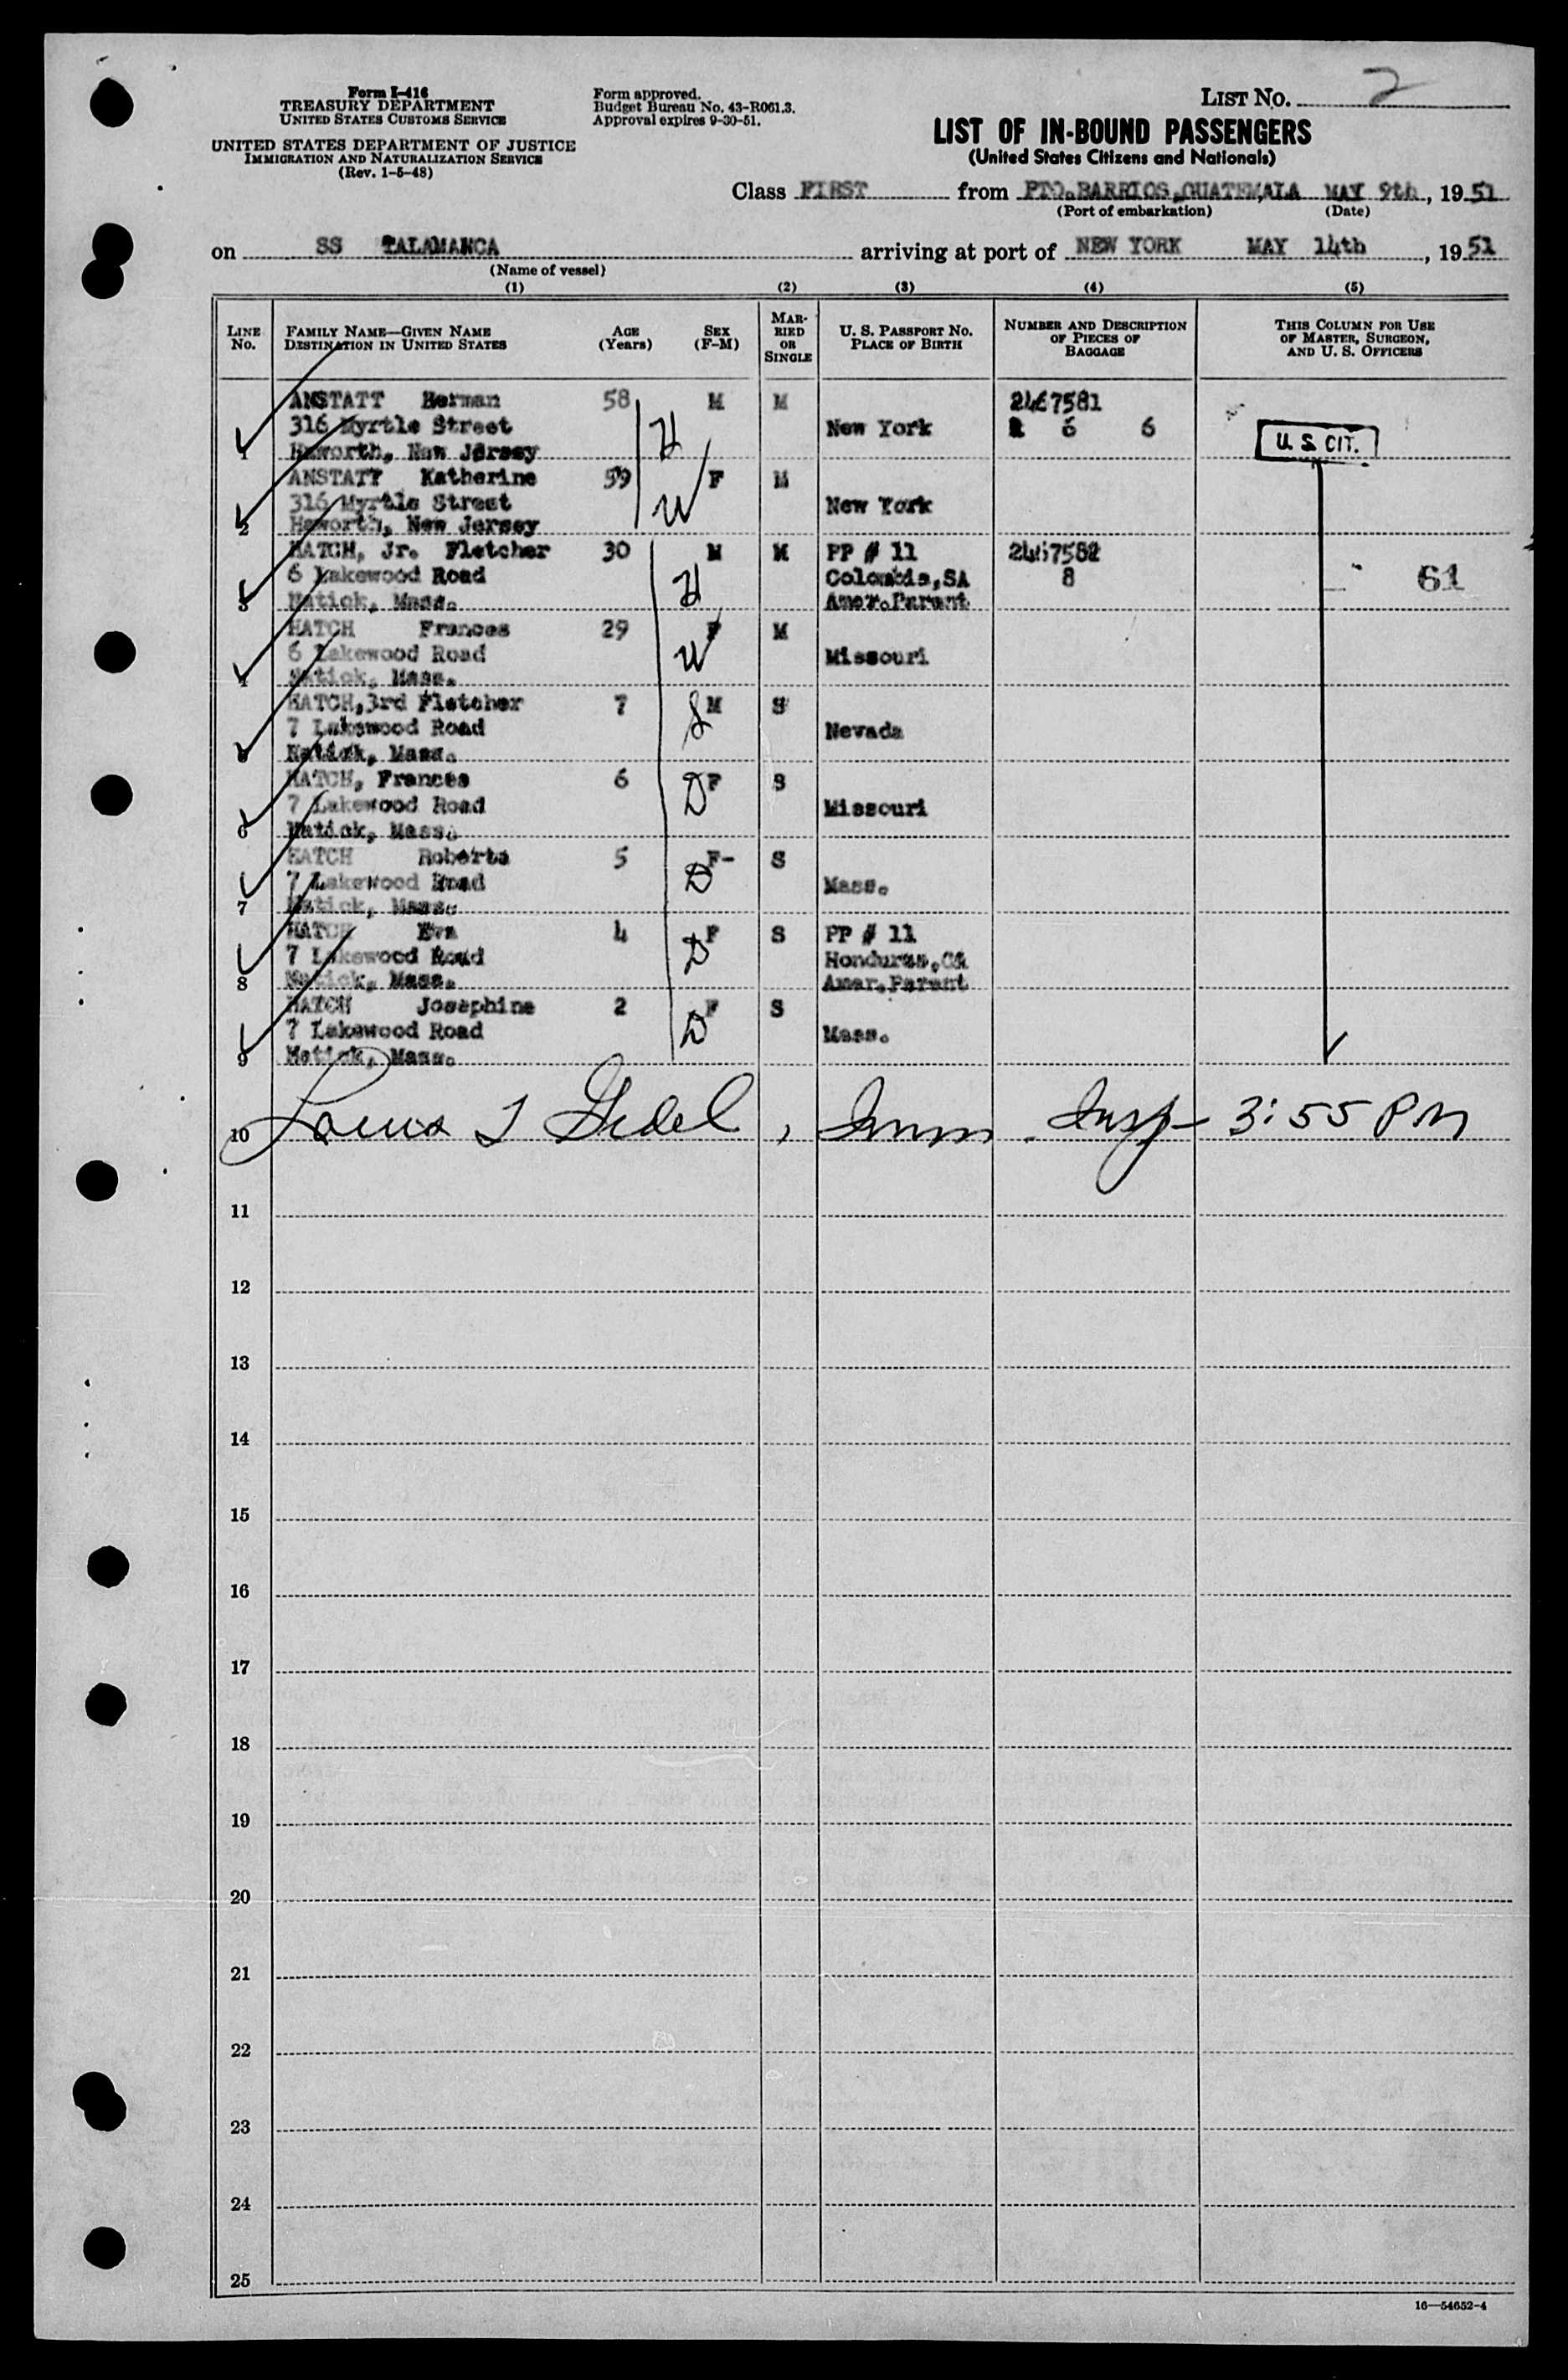 Form I-416
TREASURY DEPARTMENT
UNITED STATES CUSTOMS SERVICE
UNITED STATES DEPARTMENT OF JUSTICE
IMMIGRATION AND NATURALIZATION SERVICE
(Rev. 1-5-48)
Form approved.
Budget Bureau No. 43-R061.3.
Approval expires 9-30-51.
LIST No. 2
LIST OF IN-BOUND PASSENGERS
(United States Citizens and Nationals)
Class FIRST from PTO.BARRIOS,GUATEMALA MAY 9th, 1951
(Port of embarkation) (Date)
on SS TALAMANCA arriving at port of NEW YORK MAY 14th, 1951
(Name of vessel)
(1) (2) (3) (4) (5)
LINE No. FAMILY NAME—GIVEN NAME DESTINATION IN UNITED STATES AGE (Years) SEX (F-M) MARRIED OR SINGLE U. S. PASSPORT No. PLACE OF BIRTH NUMBER AND DESCRIPTION OF PIECES OF BAGGAGE THIS COLUMN FOR USE OF MASTER, SURGEON, AND U. S. OFFICERS
ANSTATT Herman 58 M M 2467581
316 Myrtle Street H New York 6 6 U. S. CIT.
1 Haworth, New Jersey
ANSTATT Katherine 59 F M
316 Myrtle Street W New York
2 Haworth, New Jersey
HATCH, Jr. Fletcher 30 M M PP # 11 2467582
6 Lakewood Road H Colombia,SA 8 61
3 Natick, Mass. Amer.Parent
HATCH Frances 29 F M
6 Lakewood Road W Missouri
4 Natick, Mass.
HATCH,3rd Fletcher 7 S M S
7 Lakewood Road Nevada
5 Natick, Mass.
HATCH, Frances 6 D F S
7 Lakewood Road Missouri
6 Natick, Mass.
HATCH Roberta 5 F- S
7 Lakewood Road D Mass.
7 Natick, Mass.
HATCH Eva 4 F S PP # 11
7 Lakewood Road D Honduras,CA
8 Natick, Mass. Amer.Parent
HATCH Josephine 2 F S
7 Lakewood Road D Mass.
9 Natick, Mass.
10 Louis I , Imm. Insp- 3:55 PM
11
12
13
14
15
16
17
18
19
20
21
22
23
24
25
16—54652-4